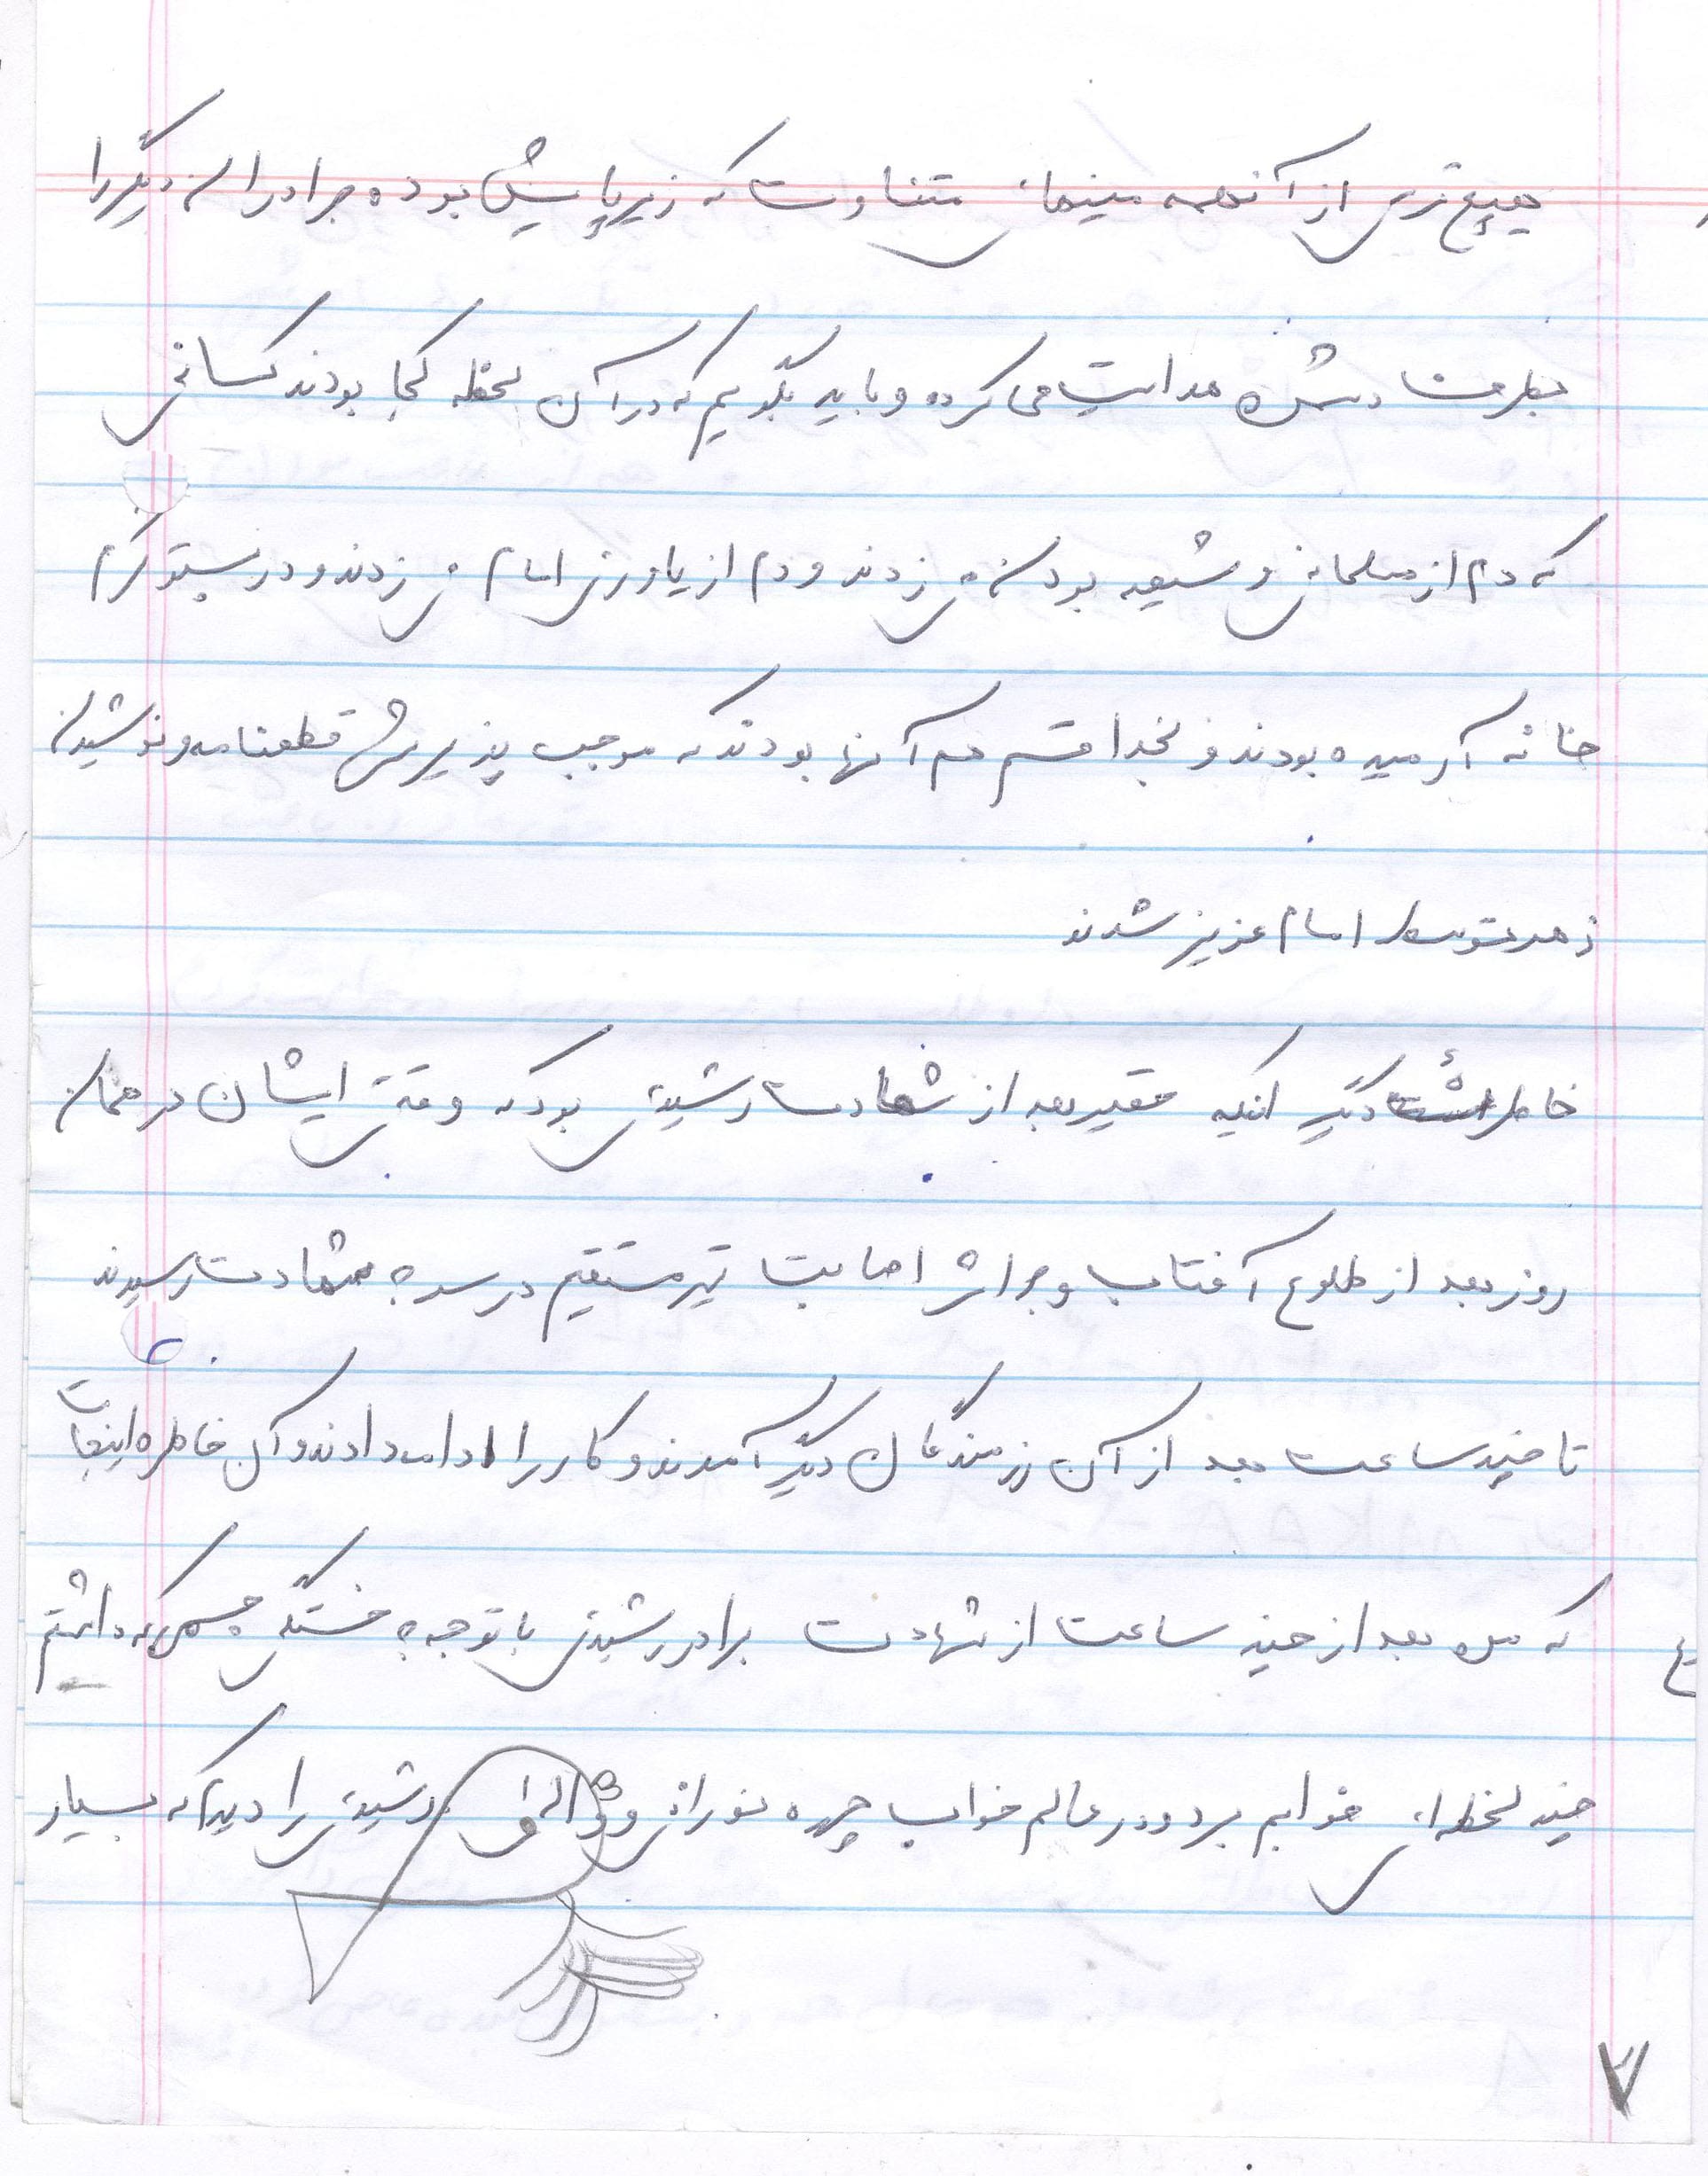 هیچ ترسی از آنهمه مینهای متفاوت که زیر پایش بوده برادران دیگر را
بطرف دشمن هدایت می کرده و باید بگویم که در آن لحظه کجا بودند کسانی
که دم از مسلمانی و شیعه بودن می زدند و دم از یاوری امام می زدند و در پستو گرم
خانه آرمیده بودند و بخدا قسم هم آنها بودند که موجب پذیرش قطعنامه و نوشیدن
زهر توسط امام عزیز شدند
خاطره دیگر اینکه فقیر بعد از شهادت رشیدی بود که وقتی ایشان در همان
روز بعد از طلوع آفتاب و بر اثر اصابت تیر مستقیم در سر به شهادت رسیدند
تا چند ساعت بعد از آن رزمندگان دیگر آمدند و کار را ادامه دادند و آن خاطره اینجاست
که من بعد از چند ساعت از شهادت برادر رشیدی با توجه به خستگی جسمی که داشتم
چند لحظه ای خوابم برد و در عالم خواب چهره نورانی و رشیدی را دیدم که بسیار
۷